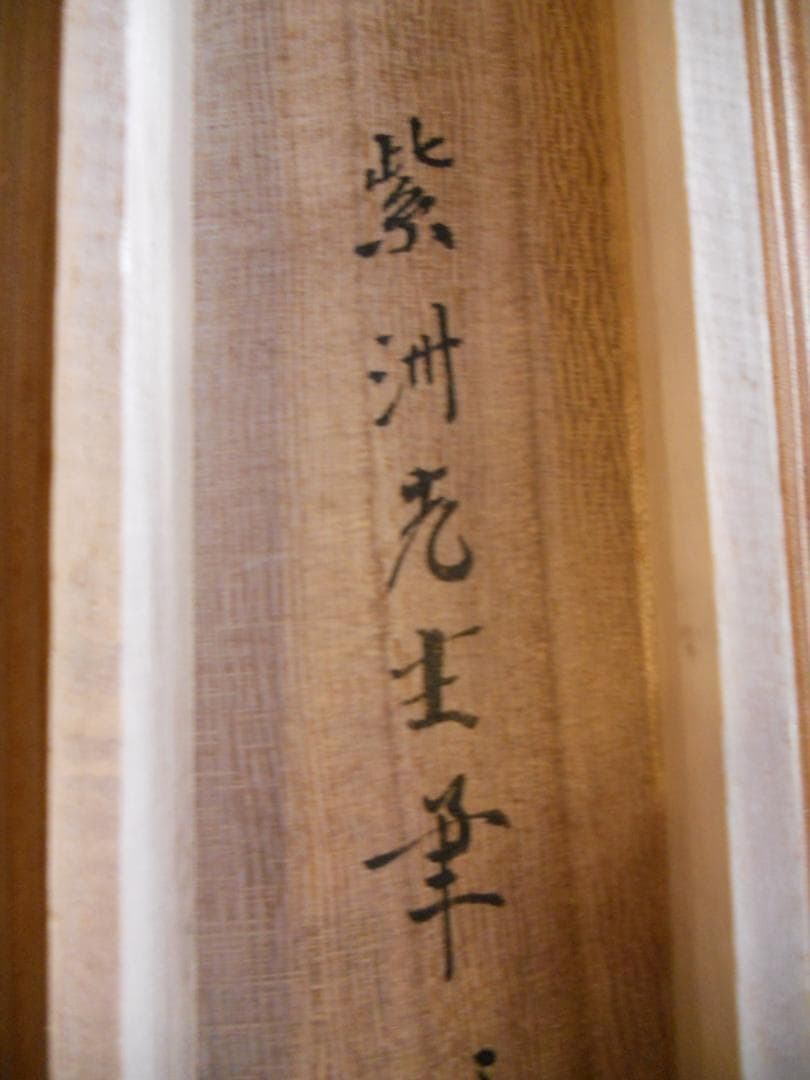 紫洲先生筆